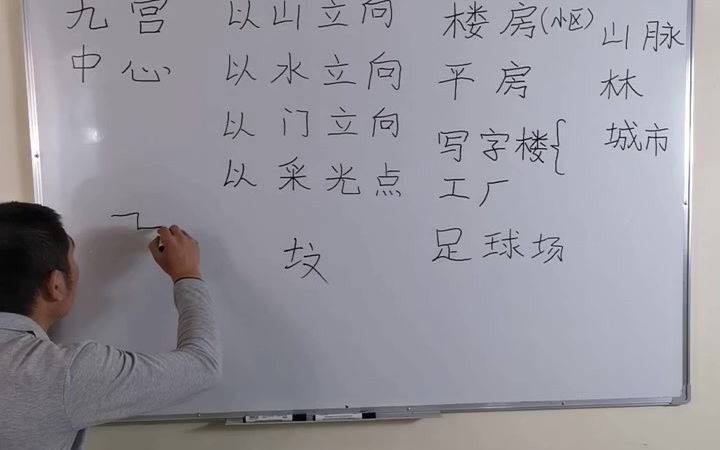 九宫
中心
以山立向
以水立向
以门立向
以采光点
坟
楼房(小区)
平房
写字楼{
工厂
足球场
山脉
林
城市